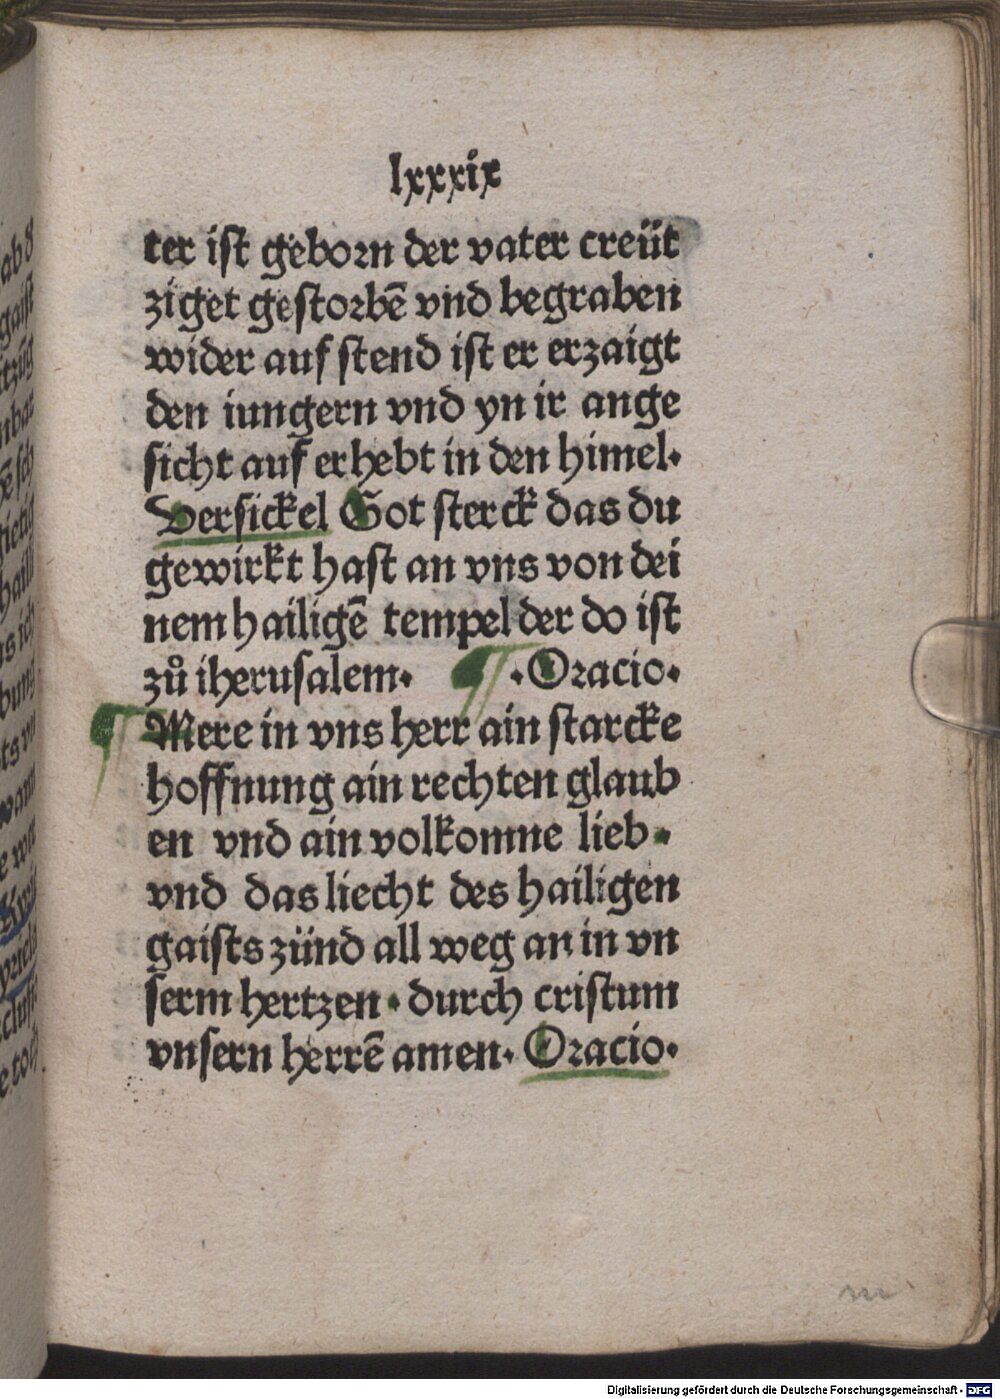 lxxxix
ter ist geborn der vater creüt
ziget gestorbē vnd begraben
wider auf stend ist er erzaigt
den iungern vnd yn ir ange
sicht auf erhebt in den himel.
Versickel Got sterck das du
gewirkt hast an vns von dei
nem hailigē tempel der do ist
zů iherusalem. .Oracio.
Mere in vns herr ain starcke
hoffnung ain rechten glaub
en vnd ain volkomne lieb.
vnd das liecht des hailigen
gaists zünd all weg an in vn
serm hertzen. durch cristum
vnsern herrē amen. Oracio.
Digitalisierung gefördert durch die Deutsche Forschungsgemeinschaft - DFG